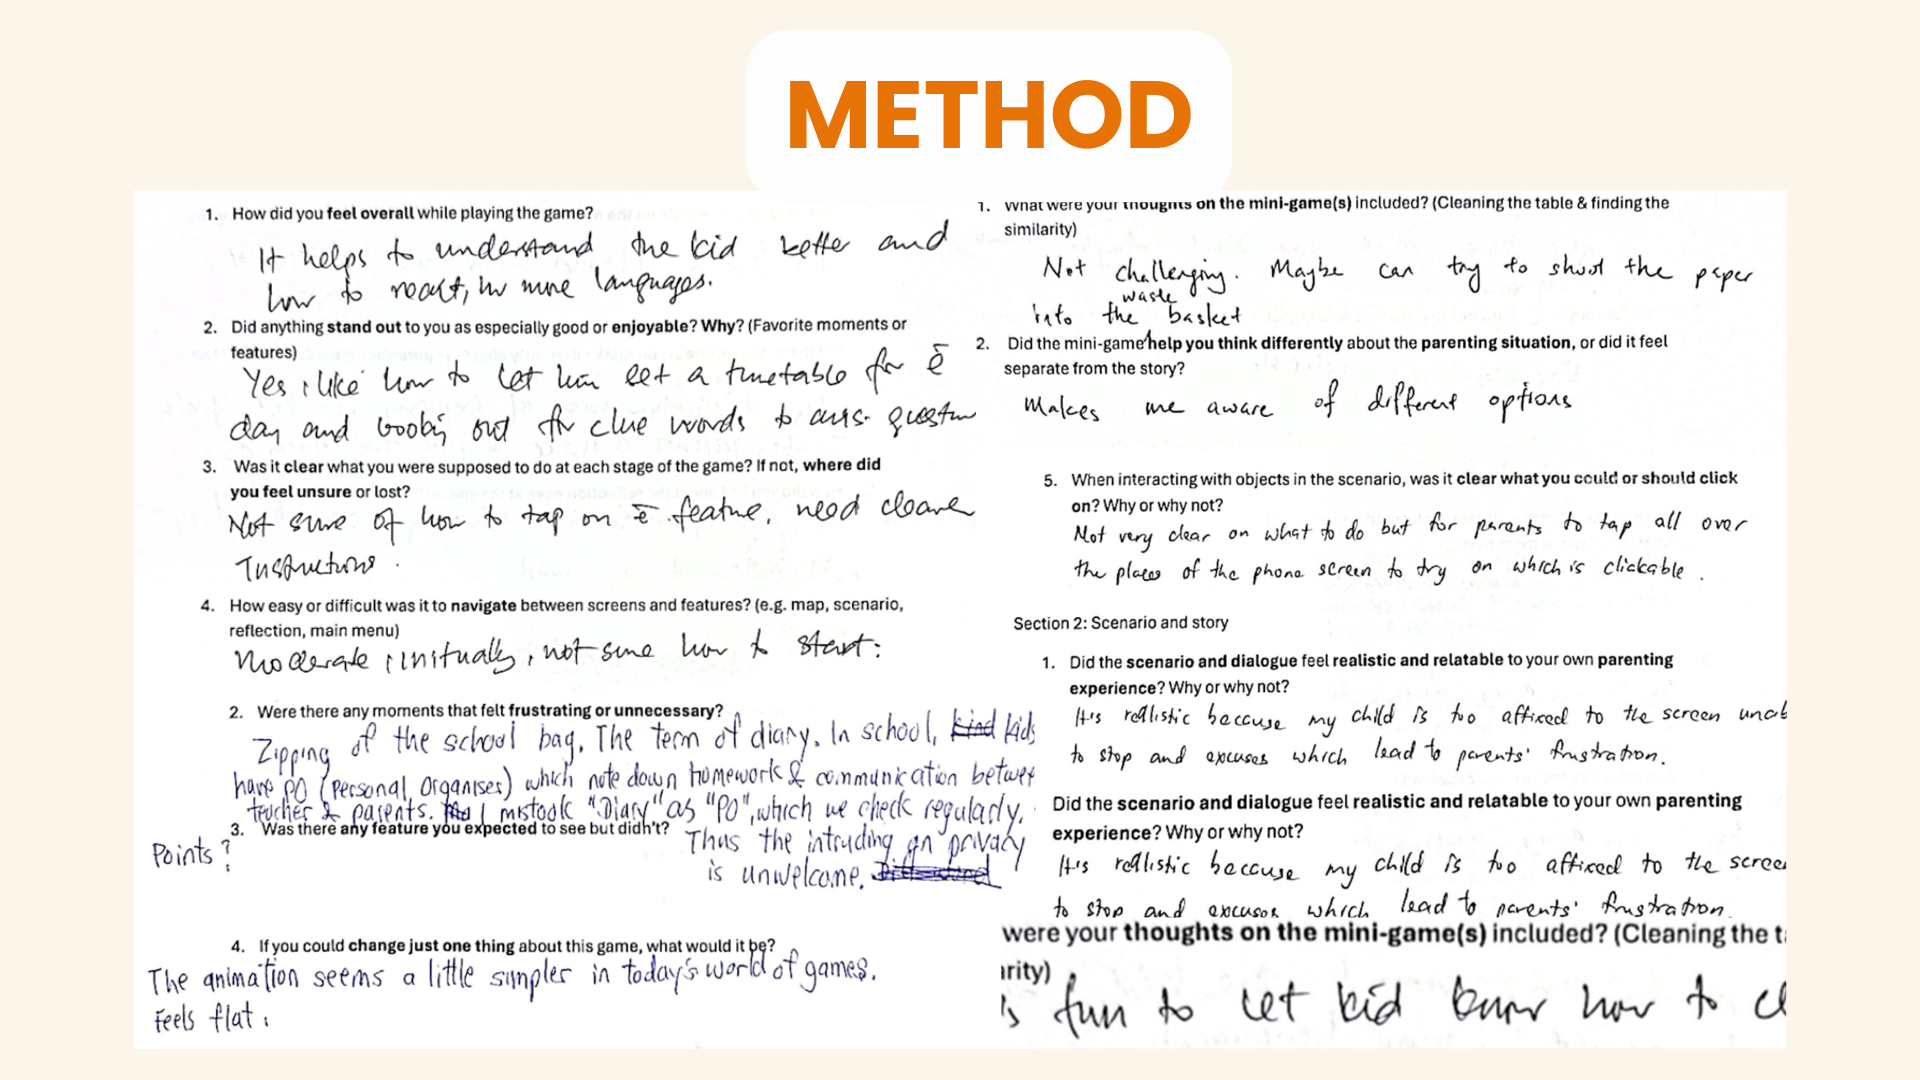 METHOD
1. How did you feel overall while playing the game?
It helps to understand the kid better and
how to react, in more languages.
2. Did anything stand out to you as especially good or enjoyable? Why? (Favorite moments or
features)
Yes I like how to let him set a timetable for ē
day and looking out for clue words to ans. question
3. Was it clear what you were supposed to do at each stage of the game? If not, where did
you feel unsure or lost?
Not sure of how to tap on ē feature, need clearer
Instructions.
4. How easy or difficult was it to navigate between screens and features? (e.g. map, scenario,
reflection, main menu)
Moderate, initially, not sure how to start.
2. Were there any moments that felt frustrating or unnecessary?
Zipping of the school bag. The term of diary. In school, kind kids
have PO (Personal Organiser) which note down homework & communication betwee
teacher & parents. I mistook "Diary" as "PO", which we check regularly.
Thus the intruding on privacy
is unwelcome.
3. Was there any feature you expected to see but didn't?
Points?
4. If you could change just one thing about this game, what would it be?
The animation seems a little simpler in today's world of games.
Feels flat.
1. What were your thoughts on the mini-game(s) included? (Cleaning the table & finding the
similarity)
Not challenging. Maybe can try to shoot the paper
into the waste basket
2. Did the mini-game help you think differently about the parenting situation, or did it feel
separate from the story?
Makes me aware of different options
5. When interacting with objects in the scenario, was it clear what you could or should click
on? Why or why not?
Not very clear on what to do but for parents to tap all over
the places of the phone screen to try on which is clickable.
Section 2: Scenario and story
1. Did the scenario and dialogue feel realistic and relatable to your own parenting
experience? Why or why not?
It's realistic because my child is too affixed to the screen unab
to stop and excuses which lead to parents' frustration.
Did the scenario and dialogue feel realistic and relatable to your own parenting
experience? Why or why not?
It's realistic because my child is too affixed to the scree
to stop and excuses which lead to parents' frustration.
were your thoughts on the mini-game(s) included? (Cleaning the t
rity)
's fun to let kid know how to cl